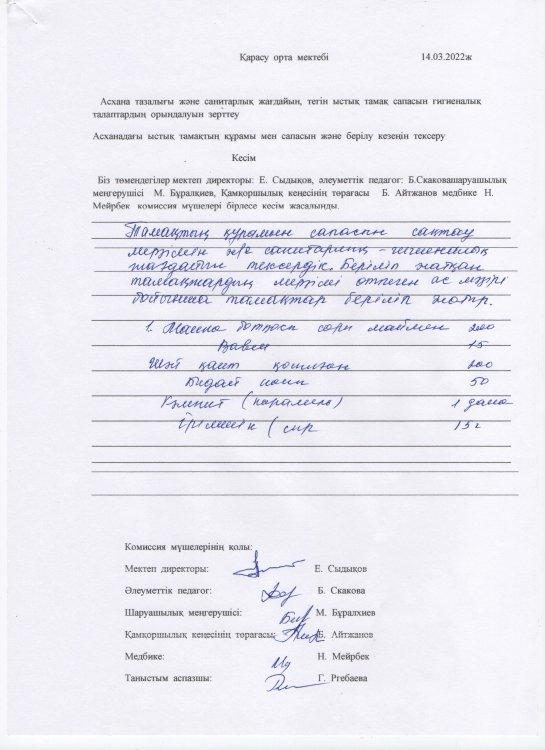 Қарасу орта мектебі 14.03.2022ж
Асхана тазалығы және санитарлық жағдайын, тегін ыстық тамақ сапасын гигиеналық
талаптардың орындалуын зерттеу
Асханадағы ыстық тамақтың құрамы мен сапасын және берілу кезеңін тексеру
Кесім
Біз төмендегілер мектеп директоры: Е. Сыдықов, әлеуметтік педагог: Б.Скаковашаруашылық
меңгерушісі М. Бұралқиев, Қамқоршылық кеңесінің торағасы Б. Айтжанов медбике Н.
Мейрбек комиссия мүшелері бірлесе кесім жасалынды.
Тамақтың құрамын сапасын сақтау
мерзімін және санитарлық-гигиеналық
жағдайын тексердік. Беріліп жатқан
тамақтардың мерзімі өтпеген ас мәзірі
бойынша тамақтар беріліп жатр.
1. Манна ботқасы сары маймен 200
15
қант қосылған 200
Бидай нан 50
Кәмпит (карамель) 1 дана
Ірімшік (сыр 15г
Комиссия мүшелерінің қолы:
Мектеп директоры: Е. Сыдықов
Әлеуметтік педагог: Б. Скакова
Шаруашылық меңгерушісі: М. Бұралхиев
Қамқоршылық кеңесінің торағасы: Б. Айтжанов
Медбике: Н. Мейрбек
Таныстым аспазшы: Г. Ргебаева